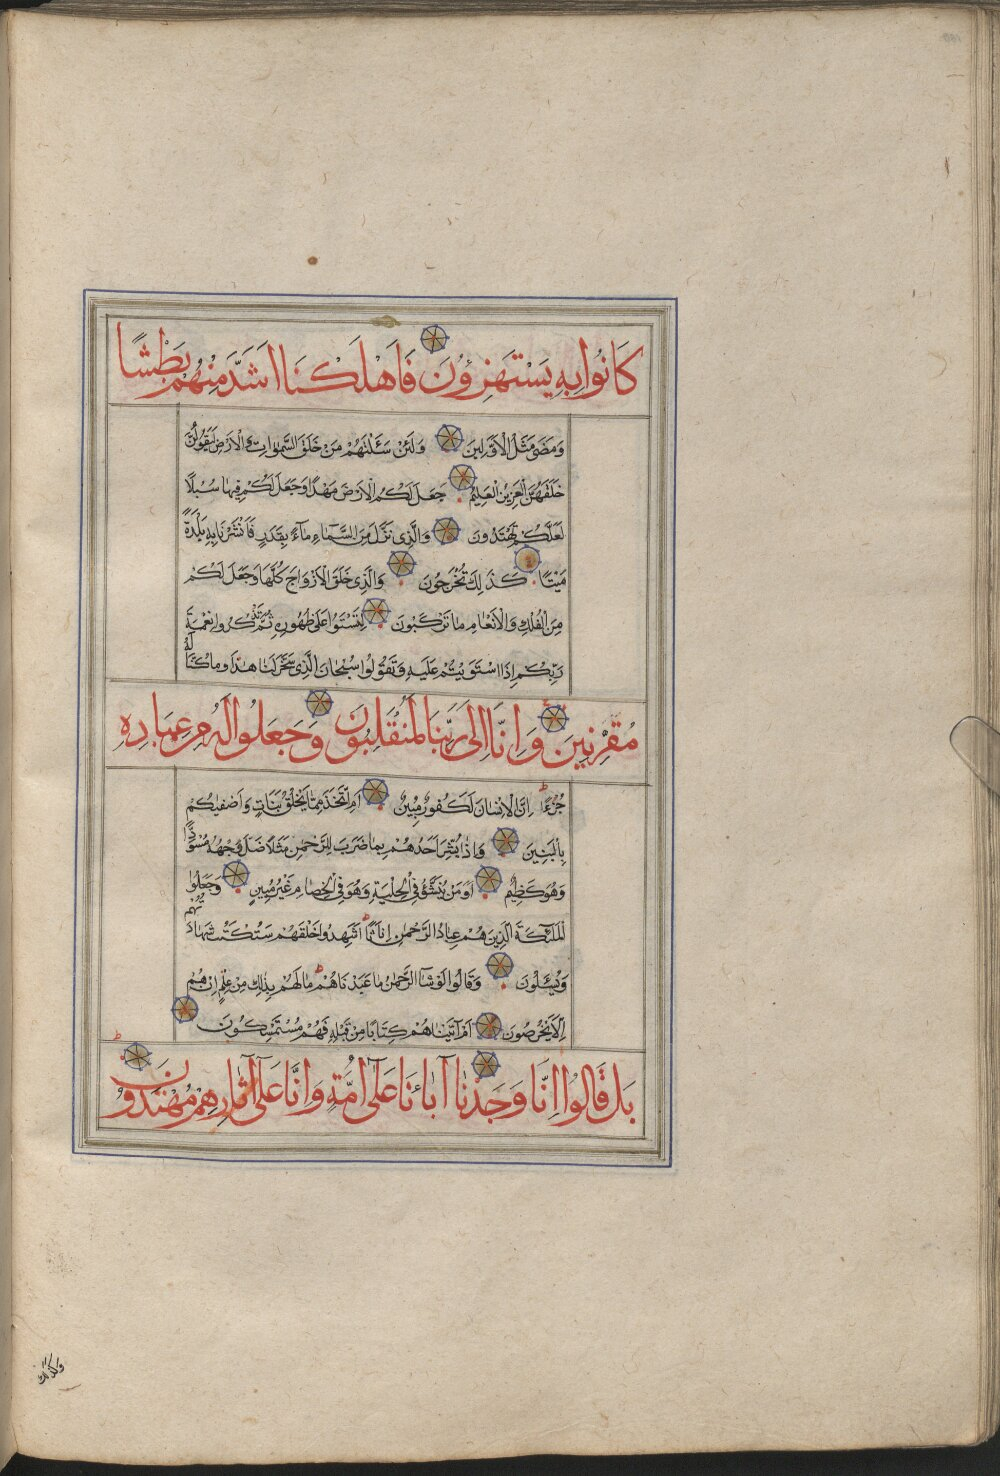 كَانُوا بِهِ يَسْتَهْزِؤُنَ فَاَهْلَكْنَا اَشَدَّ مِنْهُمْ بَطْشًا
وَمَضٰى مَثَلُ الْاَوَّلِينَ وَلَئِنْ سَئَلْتَهُمْ مَنْ خَلَقَ السَّمٰوَاتِ وَالْاَرْضَ لَيَقُولُنَّ
خَلَقَهُنَّ الْعَزِيزُ الْعَلِيمُ جَعَلَ لَكُمُ الْاَرْضَ مَهْدًا وَجَعَلَ لَكُمْ فِيهَا سُبُلًا
لَعَلَّكُمْ تَهْتَدُونَ وَالَّذِى نَزَّلَ مِنَ السَّمَاءِ مَاءً بِقَدَرٍ فَاَنْشَرْنَا بِهِ بَلْدَةً
مَيْتًا كَذٰلِكَ تُخْرَجُونَ وَالَّذِى خَلَقَ الْاَزْوَاجَ كُلَّهَا وَجَعَلَ لَكُمْ
مِنَ الْفُلْكِ وَالْاَنْعَامِ مَا تَرْكَبُونَ لِتَسْتَوُا عَلٰى ظُهُورِهِ ثُمَّ تَذْكُرُوا نِعْمَةَ
رَبِّكُمْ اِذَا اسْتَوَيْتُمْ عَلَيْهِ وَتَقُولُوا سُبْحَانَ الَّذِى سَخَّرَ لَنَا هٰذَا وَمَا كُنَّا لَهُ
مُقْرِنِينَ وَاِنَّا اِلٰى رَبِّنَا لَمُنْقَلِبُونَ وَجَعَلُوا لَهُ مِنْ عِبَادِهِ
جُزْءًا اِنَّ الْاِنْسَانَ لَكَفُورٌ مُبِينٌ اَمِ اتَّخَذَ مِمَّا يَخْلُقُ بَنَاتٍ وَاَصْفٰيكُمْ
بِالْبَنِينَ وَاِذَا بُشِّرَ اَحَدُهُمْ بِمَا ضَرَبَ لِلرَّحْمٰنِ مَثَلًا ظَلَّ وَجْهُهُ مُسْوَدًّا
وَهُوَ كَظِيمٌ اَوَمَنْ يُنَشَّؤُ فِى الْحِلْيَةِ وَهُوَ فِى الْخِصَامِ غَيْرُ مُبِينٍ وَجَعَلُوا
الْمَلٰئِكَةَ الَّذِينَ هُمْ عِبَادُ الرَّحْمٰنِ اِنَاثًا اَشَهِدُوا خَلْقَهُمْ سَتُكْتَبُ شَهَادَتُهُمْ
وَيُسْئَلُونَ وَقَالُوا لَوْ شَاءَ الرَّحْمٰنُ مَا عَبَدْنَاهُمْ مَا لَهُمْ بِذٰلِكَ مِنْ عِلْمٍ اِنْ هُمْ
اِلَّا يَخْرُصُونَ اَمْ اٰتَيْنَاهُمْ كِتَابًا مِنْ قَبْلِهِ فَهُمْ بِهِ مُسْتَمْسِكُونَ
بَلْ قَالُوا اِنَّا وَجَدْنَا آبَاءَنَا عَلٰى اُمَّةٍ وَاِنَّا عَلٰى آثَارِهِمْ مُهْتَدُونَ
وكذلك